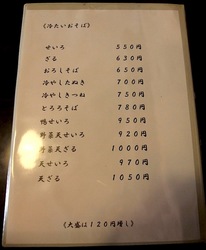 《冷たいおそば》
せいろ 550円
ざる 630円
おろしそば 650円
冷やしたぬき 700円
冷やしきつね 750円
とろろそば 780円
鴨せいろ 950円
野菜天せいろ 920円
野菜天ざる 1000円
天せいろ 970円
天ざる 1050円
《大盛は120円増し》